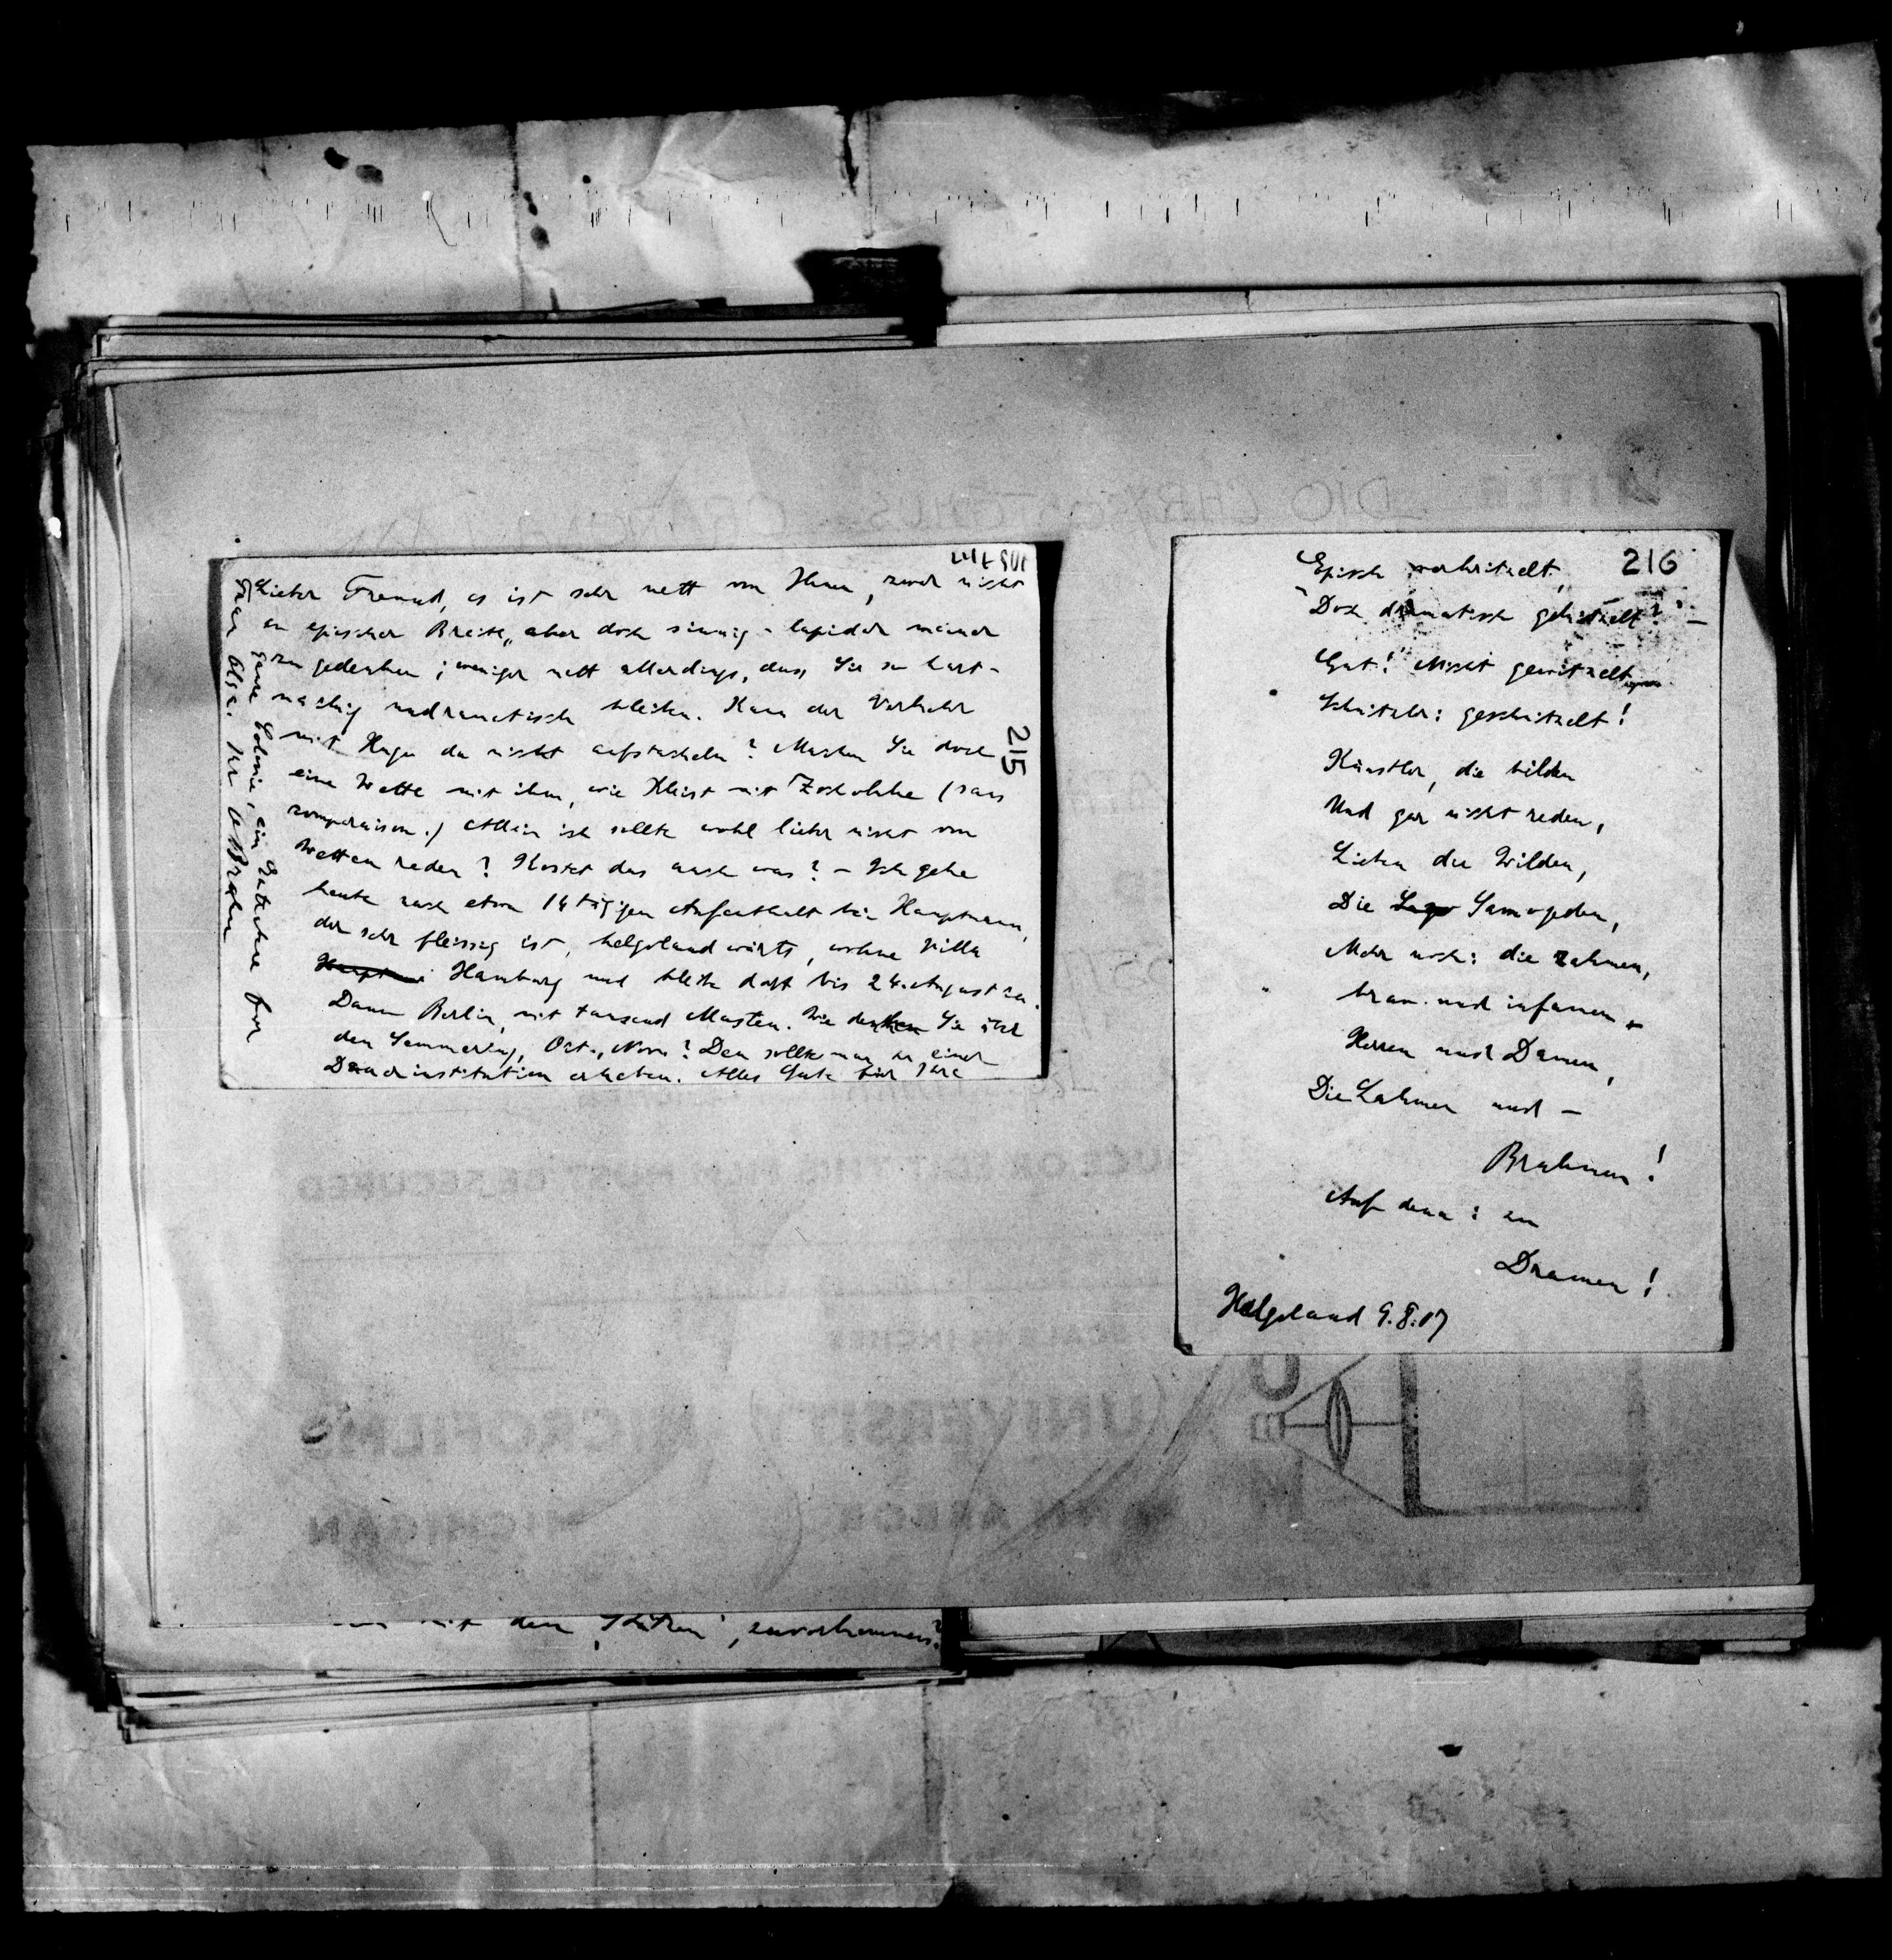 Lieber Freund, es ist sehr nett von Ihnen, zwar nicht
in epischer Breite, aber doch sinnig-lapidar meiner
zu gedenken; weniger nett allerdings, dass Sie so hart-
näckig undramatisch bleiben. Kann der Verkehr
mit Hugo da nicht aufstacheln? Machen Sie doch
eine Wette mit ihm, wie Kleist mit Zschokke (sans
comparaison.) Allein ich sollte wohl lieber nicht von
Wetten reden? Kostet das auch was? – Ich gehe
heute nach etwa 14 tägigen Aufenthalt bei Hauptmann,
der sehr fleissig ist, helgolandwärts, wohne Villa
Hamburg und bleibe dort bis 24. August ca.
Dann Berlin, mit tausend Masten. Wie denken Sie über
den Semmering, Oct., Nov.? Den sollte man zu einer
Dauerinstitution erheben. Alles Gute für Ihre
ganze Colonie, ein Extrahe for
Frau Olga. Ihr OBrahm
215
216
Episch verkritzelt,
Doch dramatisch gekitzelt? –
Gut! Nicht gewitzelt
Schnitzler: geschnitzelt!
Künstler, die bilden
Und gar nicht reden,
Lieben die Wilden,
Die Samojeden,
Mehr noch: die zahmen,
brav. und infamen
Herren und Damen,
Die Lahmen und –
Brahmen!
Auf denn: zu
Dramen!
Helgoland 9.8.07
mit den , zuvorkommen?
DIO CHRYSOSTOMUS
MUST BE SECURED
UNIVERSITY MICROFILMS
ANN ARBOR MICHIGAN